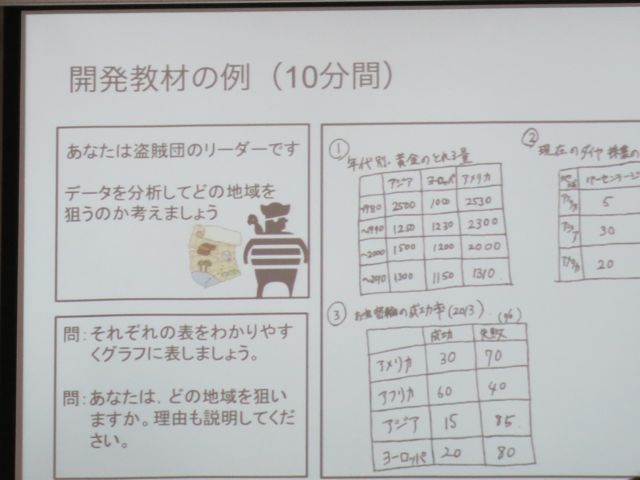 開発教材の例（10分間）
あなたは盗賊団のリーダーです
データを分析してどの地域を
狙うのか考えましょう
問：それぞれの表をわかりやす
くグラフに表しましょう。
問：あなたは，どの地域を狙い
ますか。理由も説明してくだ
さい。
① 年代別・黄金のとれる量
アジア ヨーロッパ アメリカ
~1980 2500 1000 2530
~1990 1250 1230 2300
~2000 1500 1200 2000
~2010 1300 1150 1310
② 現在のダイヤ
パーセンテージ
5
30
20
③ の成功率(2013) (%)
成功 失敗
アメリカ 30 70
アフリカ 60 40
アジア 15 85
ヨーロッパ 20 80